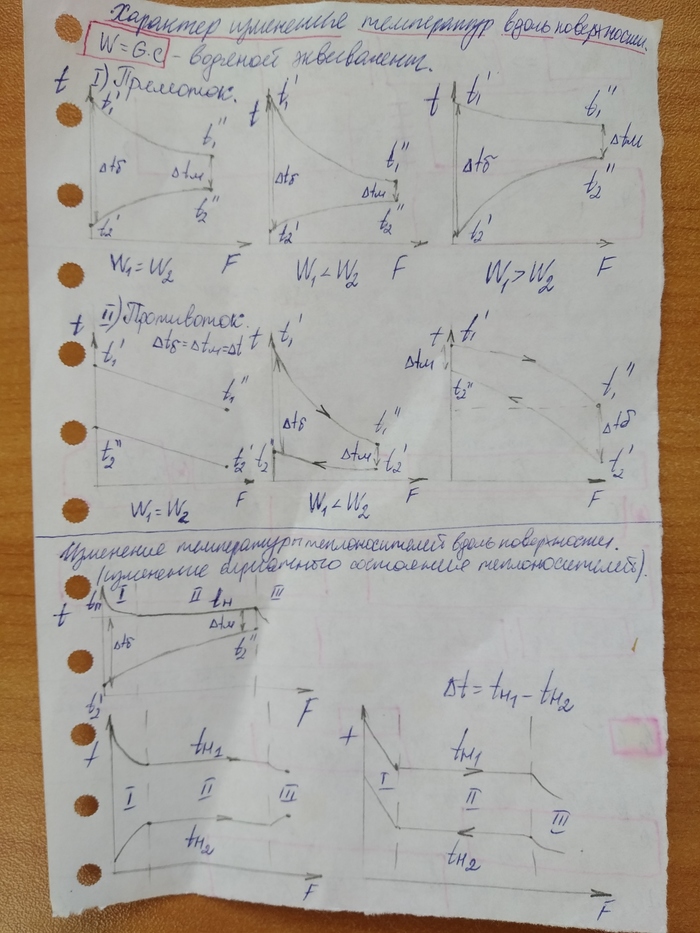 Характер изменение температур вдоль поверхности.
W = G·c - водяной эквивалент.
I) Прямоток.
t t₁' t₁'' Δtб Δtм t₂'' t₂' F
t t₁' t₁'' Δtб Δtм t₂'' t₂' F
t t₁' t₁'' Δtм Δtб t₂'' t₂' F
W₁ = W₂ W₁ < W₂ W₁ > W₂
II) Противоток.
Δtб = Δtм = Δt
t t₁' t₁'' t₂'' t₂' F
t t₁' t₁'' Δtб Δtм t₂' t₂' F
t t₁' Δtм t₂'' t₁'' Δtб t₂' F
W₁ = W₂ W₁ < W₂
Изменение температуры теплоносителей вдоль поверхности.
(изменение агрегатного состояния теплоносителей).
t tп I II tн III Δtб Δtм t₂'' t₂' F
Δt = tн₁ - tн₂
t tн₁ I II III tн₂ F
t tн₁ I II III tн₂ F